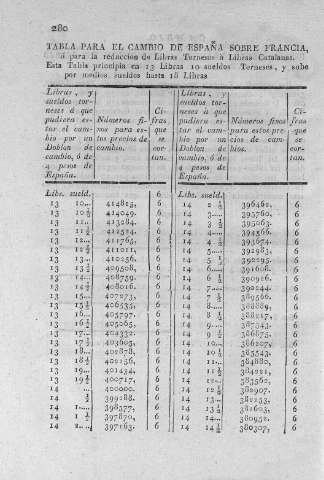 280
TABLA PARA EL CAMBIO DE ESPAÑA SOBRE FRANCIA,
ó para la reduccion de Libras Tornesas á Libras Catalanas.
Esta Tabla principia en 13 Libras 10 sueldos Torneses, y sube
por medios sueldos hasta 18 Libras
Libras, y
sueldos tor-
neses á que
pudiera es-
tar el cam-
bio por un
Doblon de
cambio, ó de
4 pesos de
España.
Números fi-
xos para es-
tos precios de
cambio.
Ci-
fras
que
se
cor-
tan.
Libras, y
sueldos tor-
neses á que
pudiera es-
tar el cam-
bio por un
Doblon de
cambio, ó de
4 pesos de
España.
Números fixos
para estos pre-
cios de cam-
bio.
Ci-
fras
que
se
cor-
tan.
Libs. sueld.
13 10... 414815, 6
13 10 ½ 414049, 6
13 11... 413284, 6
13 11 ½ 412524, 6
13 12... 411765, 6
13 12 ½ 411011, 6
13 13... 410256, 6
13 13 ½ 409508, 6
13 14... 408759, 6
13 14 ½ 408016, 6
13 15... 407273, 6
13 15 ½ 406535, 6
13 16... 405797, 6
13 16 ½ 405065, 6
13 17... 404332, 6
13 17 ½ 403605, 6
13 18... 402878, 6
13 18 ½ 402156, 6
13 19... 401434, 6
13 19 ½ 400717, 6
14 .... 400000, 6
14 ½ 399288, 6
14 1.... 398577, 6
14 1 ½ 397870, 6
14 2.... 397163, 6
Libs. sueld.
14 2 ½ 396462, 6
14 3.... 395760, 6
14 3 ½ 395063, 6
14 4.... 394366, 6
14 4 ½ 393674, 6
14 5.... 392983, 6
14 5 ½ 392295, 6
14 6.... 391608, 6
14 6 ½ 390926, 6
14 7.... 390244, 6
14 7 ½ 389566, 6
14 8.... 388889, 6
14 8 ½ 388217, 6
14 9.... 387543, 6
14 9 ½ 386875, 6
14 10... 386207, 6
14 10 ½ 385543, 6
14 11... 384880, 6
14 11 ½ 384221, 6
14 12... 383562, 6
14 12 ½ 382907, 6
14 13... 382253, 6
14 13 ½ 381603, 6
14 14... 380952, 6
14 14 ½ 380307, 6